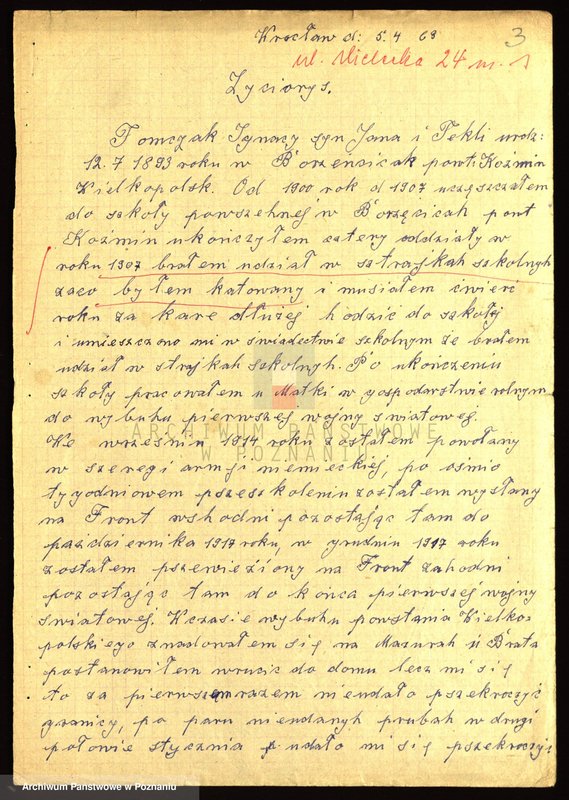 Wrocław d: 5.4 69
3
ul. Wielicka 24 m. 1
Zyciorys.
Tomczak Ignacy syn Jana i Tekli urodz:
12.7 1893 roku w Borzensicak powt: Koźmin
Wielkopolsk. Od 1900 rok d 1907 uczęszczałem
do szkoły powszehnej w Borzęcicah pont
Koźmin ukończyłem cztery oddziały w
roku 1907 brałem udział w sztrajkah szkolnyh
zaco byłem katowany i musiałem ćwierć
roku za kare dłużej hodzic do szkołej
i umieszczono mi w świadectwie szkolnym że brałem
udział w strajkah szkolnyh. Po ukończeniu
szkoły pracowałem u Matki w gospodarstwie rolnym
do wybuhu pierwszej wojny swiatowej.
We wrzesniu 1914 roku zostałem powołany
w szeregi armji niemieckiej, po ośmio
tygodniowem pszeszkoleniu zostałem wysłany
na Front wshodni pozostając tam do
pazdziernika 1917 roku, w grudniu 1917 roku
zostałem pszewieziony na Front zahodni
pozostając tam do końca pierwszej wojny
swiatowej. Wczasie wybuhu powstania Wielko=
polskiego znadowałem się na Mazurah u Brata
postanowiłem wrucic do domu lecz mi się
to za pierwszem razem nieudało pszekroczyć
granicy, po paru nieudanyh prubah w drugi
połowie stycznia udało mi się pszekroczyć
ARCHIWUM PAŃSTWOWE
W POZNANIU
Archiwum Państwowe w Poznaniu